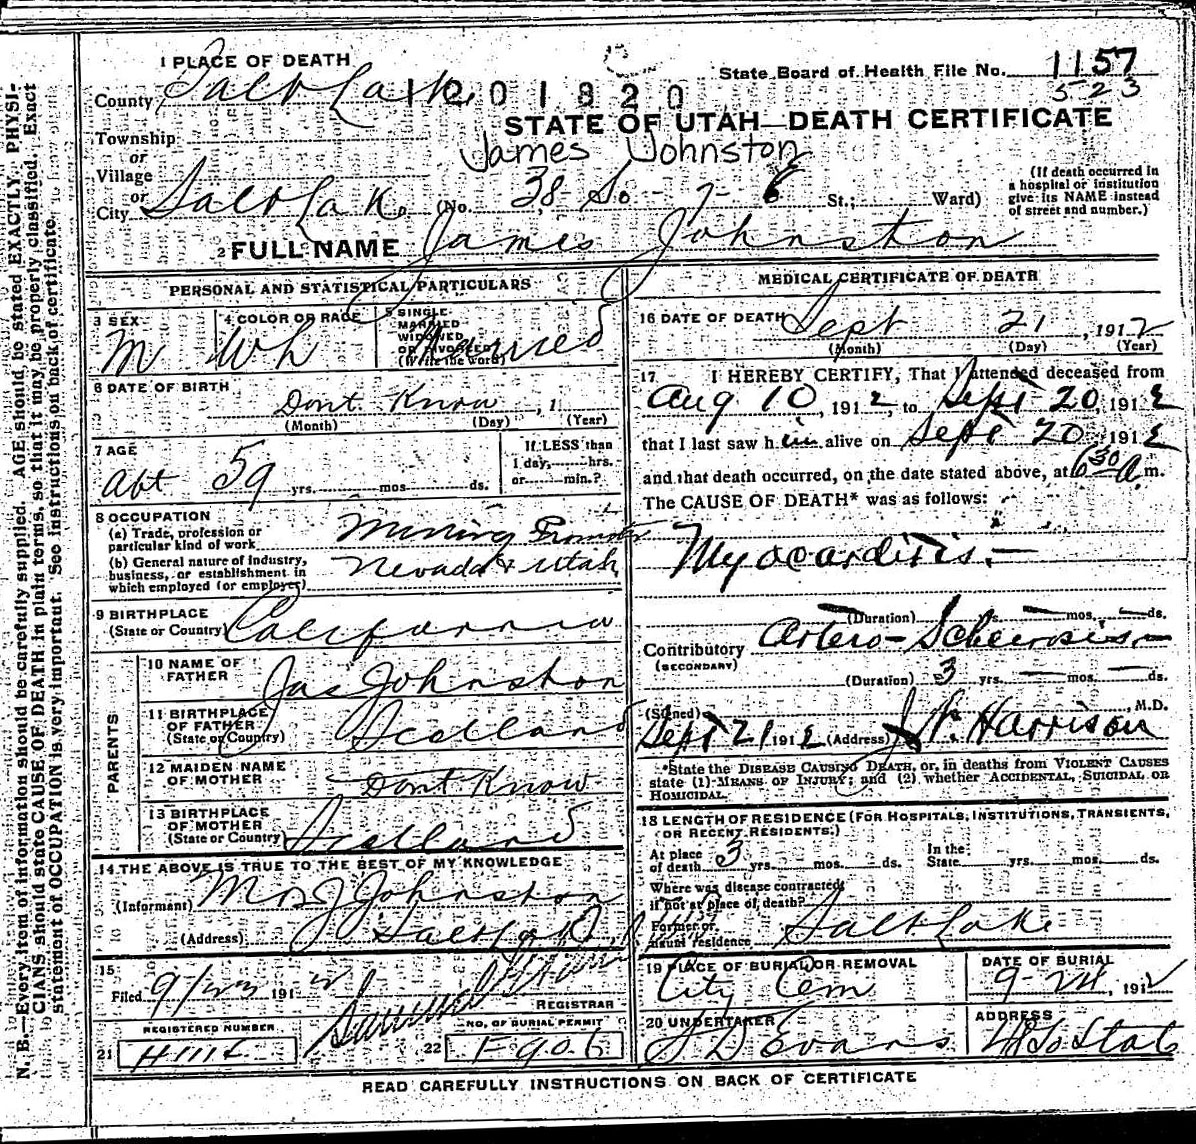 1 PLACE OF DEATH
State Board of Health File No. 1157
County Salt Lake 1201820 523
STATE OF UTAH—DEATH CERTIFICATE
Township
James Johnston
or
Village
or
City Salt Lake (No. 38 So. 7 E St.; Ward)
(If death occurred in
a hospital or institution
give its NAME instead
of street and number.)
2 FULL NAME James Johnston
PERSONAL AND STATISTICAL PARTICULARS
3 SEX M
4 COLOR OR RACE Wh
5 SINGLE
MARRIED
WIDOWED
OR DIVORCED
(Write the word) Married
6 DATE OF BIRTH
Dont Know , 1
(Month) (Day) (Year)
7 AGE
Abt 59 yrs. mos. ds.
If LESS than
1 day, hrs.
or min.?
8 OCCUPATION
(a) Trade, profession or
particular kind of work Mining Promoter
(b) General nature of industry,
business, or establishment in
which employed (or employer) Nevada & Utah
9 BIRTHPLACE
(State or Country) California
PARENTS
10 NAME OF
FATHER Jas Johnston
11 BIRTHPLACE
OF FATHER
(State or Country) Scotland
12 MAIDEN NAME
OF MOTHER Dont Know
13 BIRTHPLACE
OF MOTHER
(State or Country) Scotland
14 THE ABOVE IS TRUE TO THE BEST OF MY KNOWLEDGE
(Informant) Mrs J Johnston
(Address) Salt Lake
15
Filed 9/23 1912
REGISTRAR
REGISTERED NUMBER
21
NO. OF BURIAL PERMIT
22 F 906
MEDICAL CERTIFICATE OF DEATH
16 DATE OF DEATH Sept 21, 1912
(Month) (Day) (Year)
17 I HEREBY CERTIFY, That I attended deceased from
Aug 10, 1912, to Sept 20, 1912
that I last saw him alive on Sept 20 1912
and that death occurred, on the date stated above, at 6 30 A.m.
The CAUSE OF DEATH* was as follows:
Myocarditis.—
(Duration) yrs. — mos. — ds.
Contributory Artero-Scherosis —
(SECONDARY)
(Duration) 3 yrs. — mos. — ds.
(Signed) , M.D.
Sept 21 1912 (Address) Harrison
*State the DISEASE CAUSING DEATH, or, in deaths from VIOLENT CAUSES
state (1) MEANS OF INJURY; and (2) whether ACCIDENTAL, SUICIDAL OR
HOMICIDAL.
18 LENGTH OF RESIDENCE (FOR HOSPITALS, INSTITUTIONS, TRANSIENTS,
OR RECENT RESIDENTS.)
At place
of death 3 yrs. mos. ds.
In the
State yrs. mos. ds.
Where was disease contracted
if not at place of death?
Former or
usual residence Salt Lake
19 PLACE OF BURIAL OR REMOVAL
City Cem
DATE OF BURIAL
9-24, 1912
20 UNDERTAKER
S D Evans
ADDRESS
48 So State
READ CAREFULLY INSTRUCTIONS ON BACK OF CERTIFICATE
N. B.—Every item of information should be carefully supplied. AGE should be stated EXACTLY. PHYSI-
CIANS should state CAUSE OF DEATH in plain terms, so that it may be properly classified. Exact
statement of OCCUPATION is very important. See instructions on back of certificate.